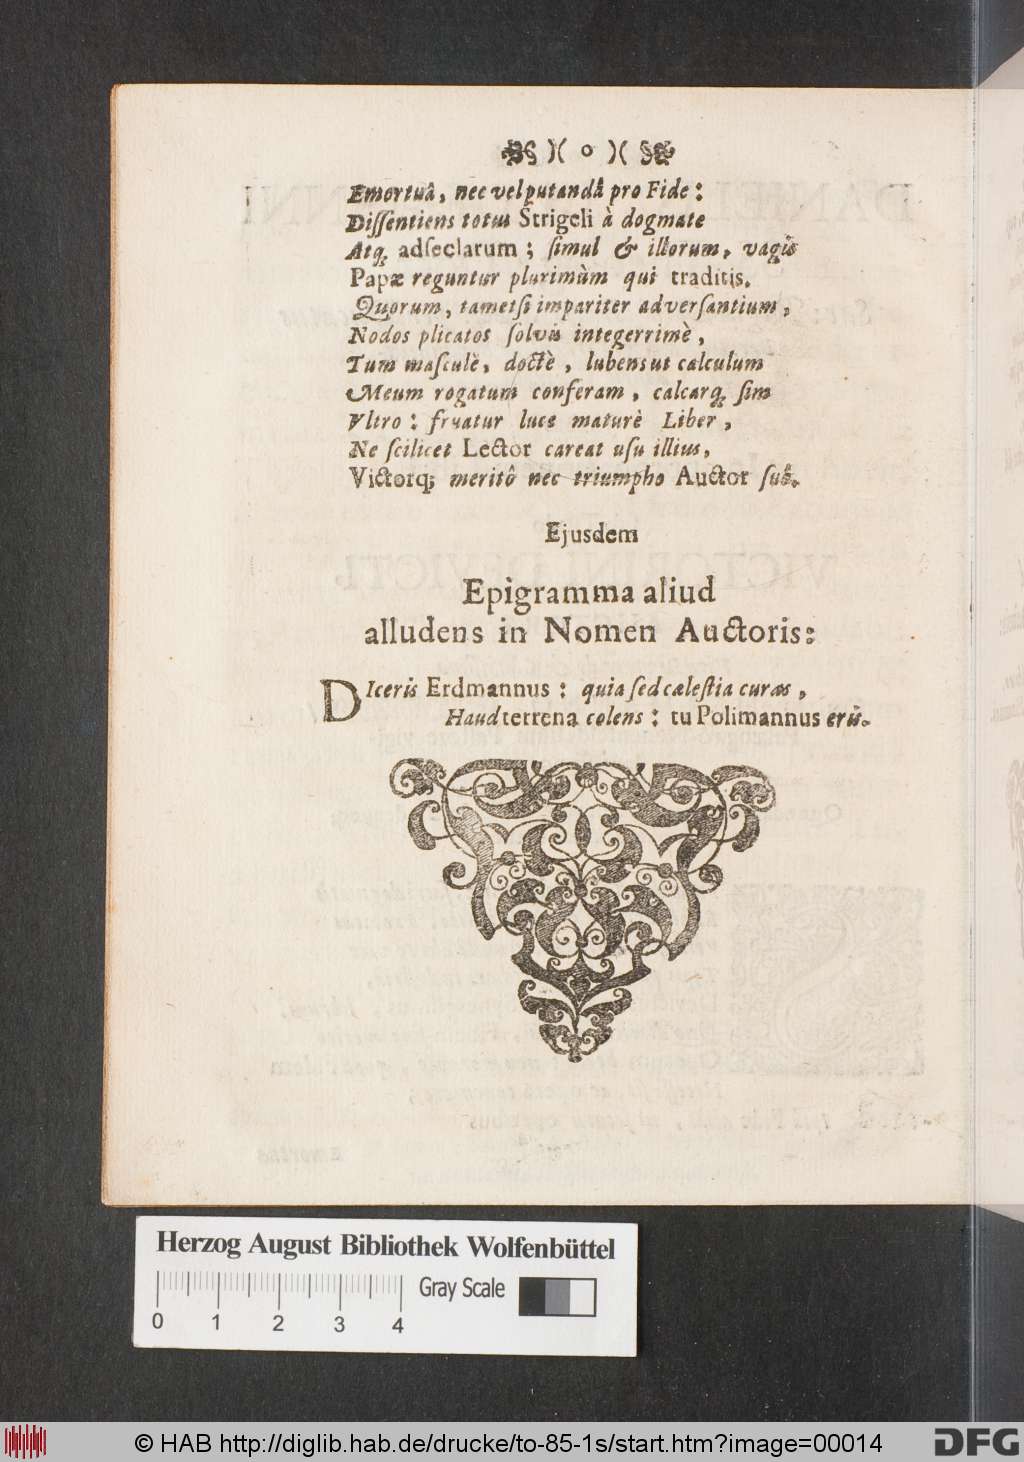 )( o )(
Emortuâ, nec vel putandâ pro Fide:
Dissentiens totus Strigeli à dogmate
Atq; adseclarum; simul & illorum, vagis
Papæ reguntur plurimùm qui traditis.
Quorum, tametsi impariter adversantium,
Nodos plicatos solvis integerrimè,
Tum masculè, doctè, lubens ut calculum
Meum rogatum conferam, calcarq; sim
Vltro: fruatur luce maturè Liber,
Ne scilicet Lector careat usu illius,
Victorq; meritô nec triumpho Auctor suô.
Ejusdem
Epigramma aliud
alludens in Nomen Auctoris:
DIceris Erdmannus: quia sed cælestia curas,
Haud terrena colens: tu Polimannus eris.
Herzog August Bibliothek Wolfenbüttel
Gray Scale
0 1 2 3 4
© HAB http://diglib.hab.de/drucke/to-85-1s/start.htm?image=00014
DFG